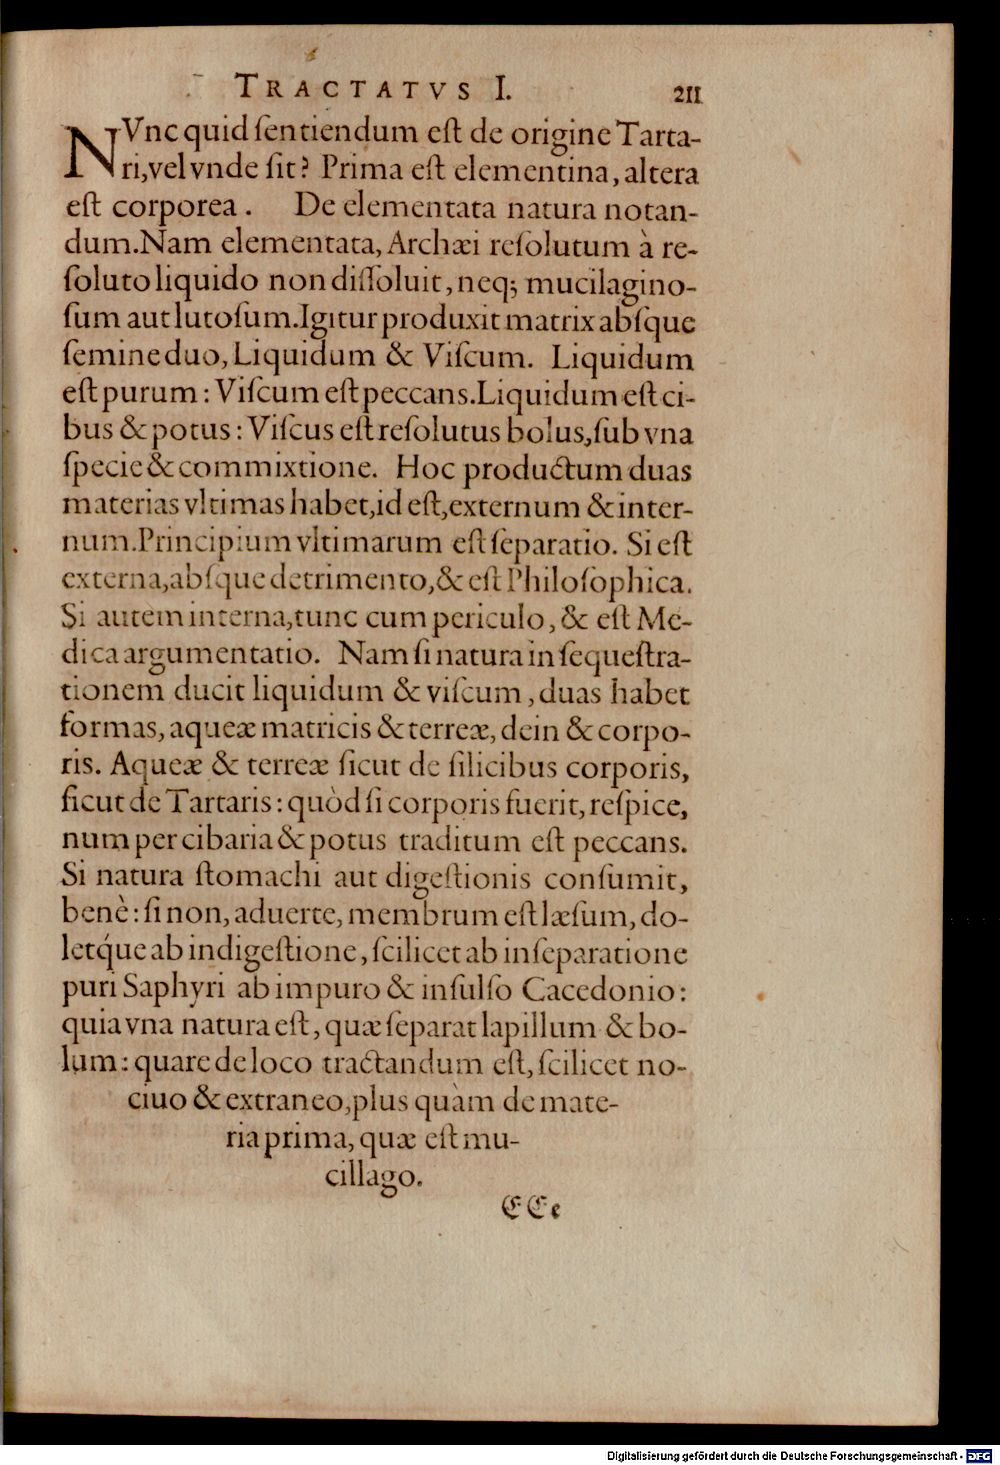 TRACTATVS I. 211
NVnc quid ſentiendum eſt de origine Tarta-
ri, vel vnde ſit? Prima eſt elementina, altera
eſt corporea. De elementata natura notan-
dum. Nam elementata, Archæi reſolutum à re-
ſoluto liquido non diſſoluit, neq; mucilagino-
ſum aut lutoſum. Igitur produxit matrix abſque
ſemine duo, Liquidum & Viſcum. Liquidum
eſt purum: Viſcum eſt peccans. Liquidum eſt ci-
bus & potus: Viſcus eſt reſolutus bolus, ſub vna
ſpecie & commixtione. Hoc productum duas
materias vltimas habet, id eſt, externum & inter-
num. Principium vltimarum eſt ſeparatio. Si eſt
externa, abſque detrimento, & eſt Philoſophica.
Si autem interna, tunc cum periculo, & eſt Me-
dica argumentatio. Nam ſi natura in ſequeſtra-
tionem ducit liquidum & viſcum, duas habet
formas, aqueæ matricis & terreæ, dein & corpo-
ris. Aqueæ & terreæ ſicut de ſilicibus corporis,
ſicut de Tartaris: quòd ſi corporis fuerit, reſpice,
num per cibaria & potus traditum eſt peccans.
Si natura ſtomachi aut digeſtionis conſumit,
benè: ſi non, aduerte, membrum eſt læſum, do-
letq́ue ab indigeſtione, ſcilicet ab inſeparatione
puri Saphyri ab impuro & inſulſo Cacedonio:
quia vna natura eſt, quæ ſeparat lapillum & bo-
lum: quare de loco tractandum eſt, ſcilicet no-
ciuo & extraneo, plus quàm de mate-
ria prima, quæ eſt mu-
cillago.
EEe
Digitalisierung gefördert durch die Deutsche Forschungsgemeinschaft - DFG